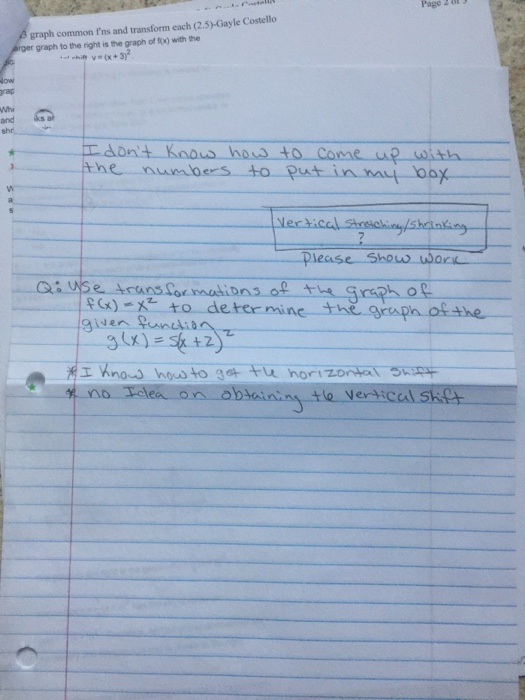 Page 2 of 3
graph common f'ns and transform each (2.5)-Gayle Costello
arger graph to the right is the graph of f(x) with the
y = (x + 3)²
Now
grap
and
she
ks at
I don't know how to come up with
the numbers to put in my box
Vertical stretching/shrinking
?
Please show work
Q: Use transformations of the graph of
f(x) = x² to determine the graph of the
given function
g(x) = 5(x + 2)²
* I know how to get the horizontal shift
* no Idea on obtaining the vertical shift